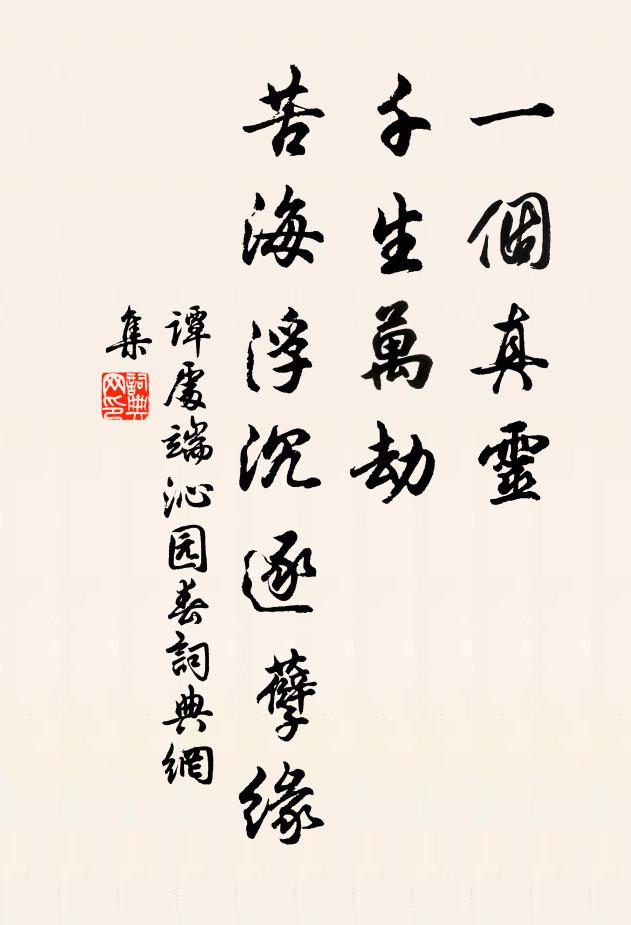 一個真靈
千生萬劫
苦海浮沉逐孽緣
谭處端沁园春詞典網
集
詞典
网印